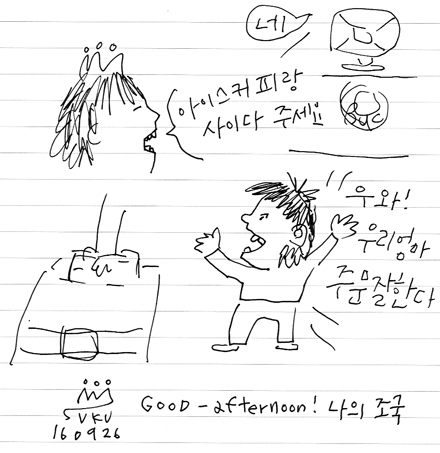 네!
아이스커피랑
사이다 주세요
우와!
우리엄마
주문잘한다
SVKU
160926
GOOD-afternoon! 나의 조국